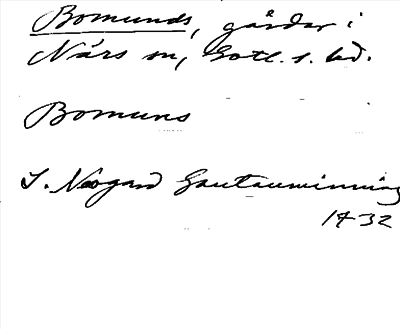 Bomunds, gårdar i
Närs sn, Gotl. s. hd.
Bomuns
J. Nogard Gautauminning
1932